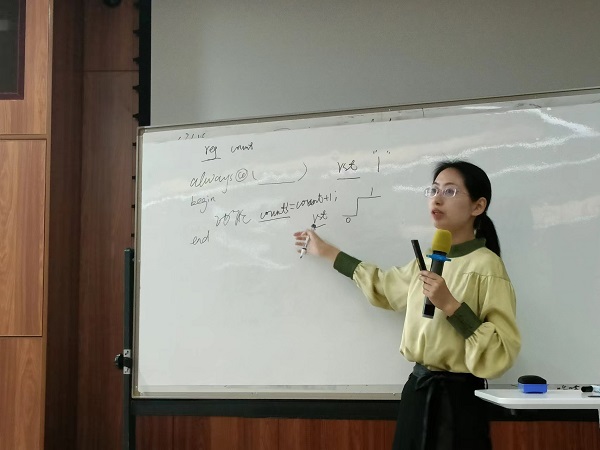 reg count
always@( ) rst "1"
begin
count=count+1; 1
rst 0
end